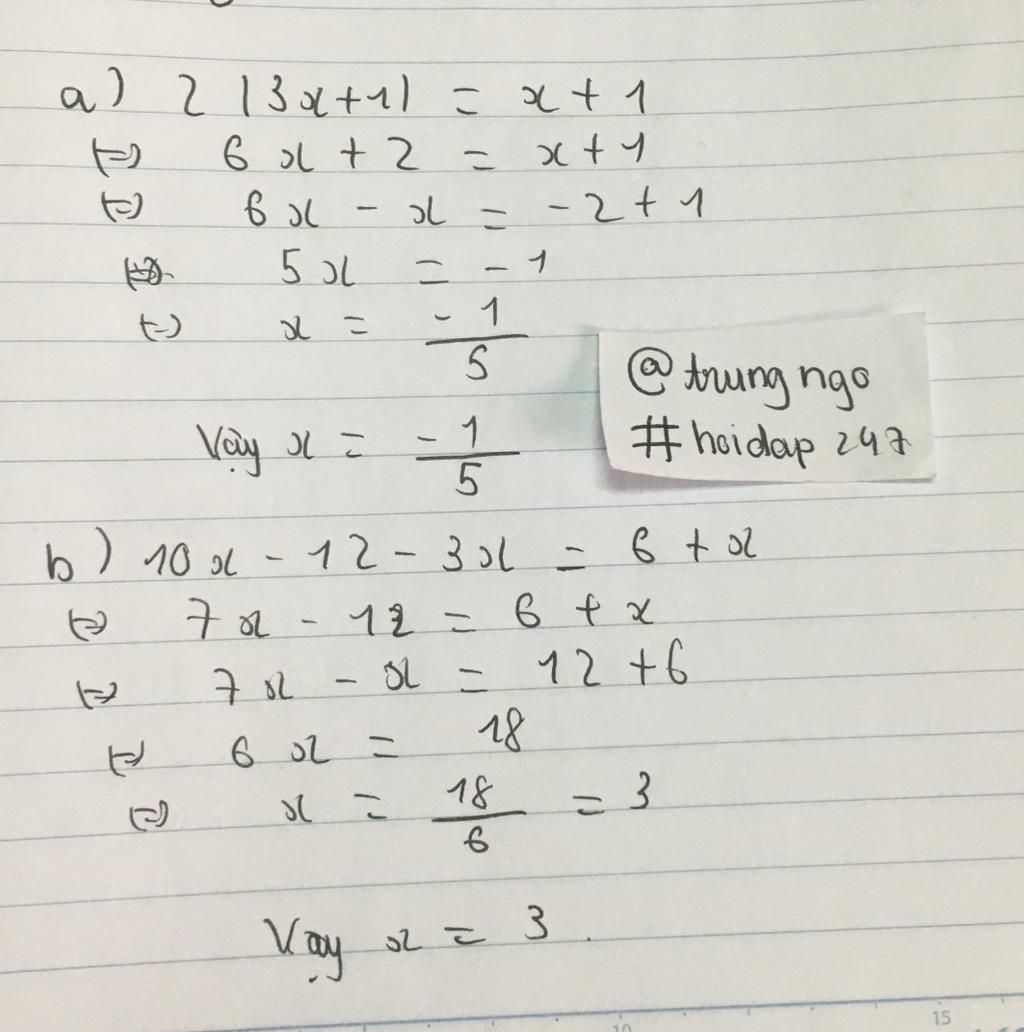 a) 2 |3x+1| = x + 1
⇔ 6x + 2 = x + 1
⇔ 6x - x = -2 + 1
⇔ 5x = -1
⇔ x = -1/5
Vậy x = -1/5
@trungngo
#hoidap247
b) 10x - 12 - 3x = 6 + x
⇔ 7x - 12 = 6 + x
⇔ 7x - x = 12 + 6
⇔ 6x = 18
⇔ x = 18/6 = 3
Vậy x = 3.
10 15